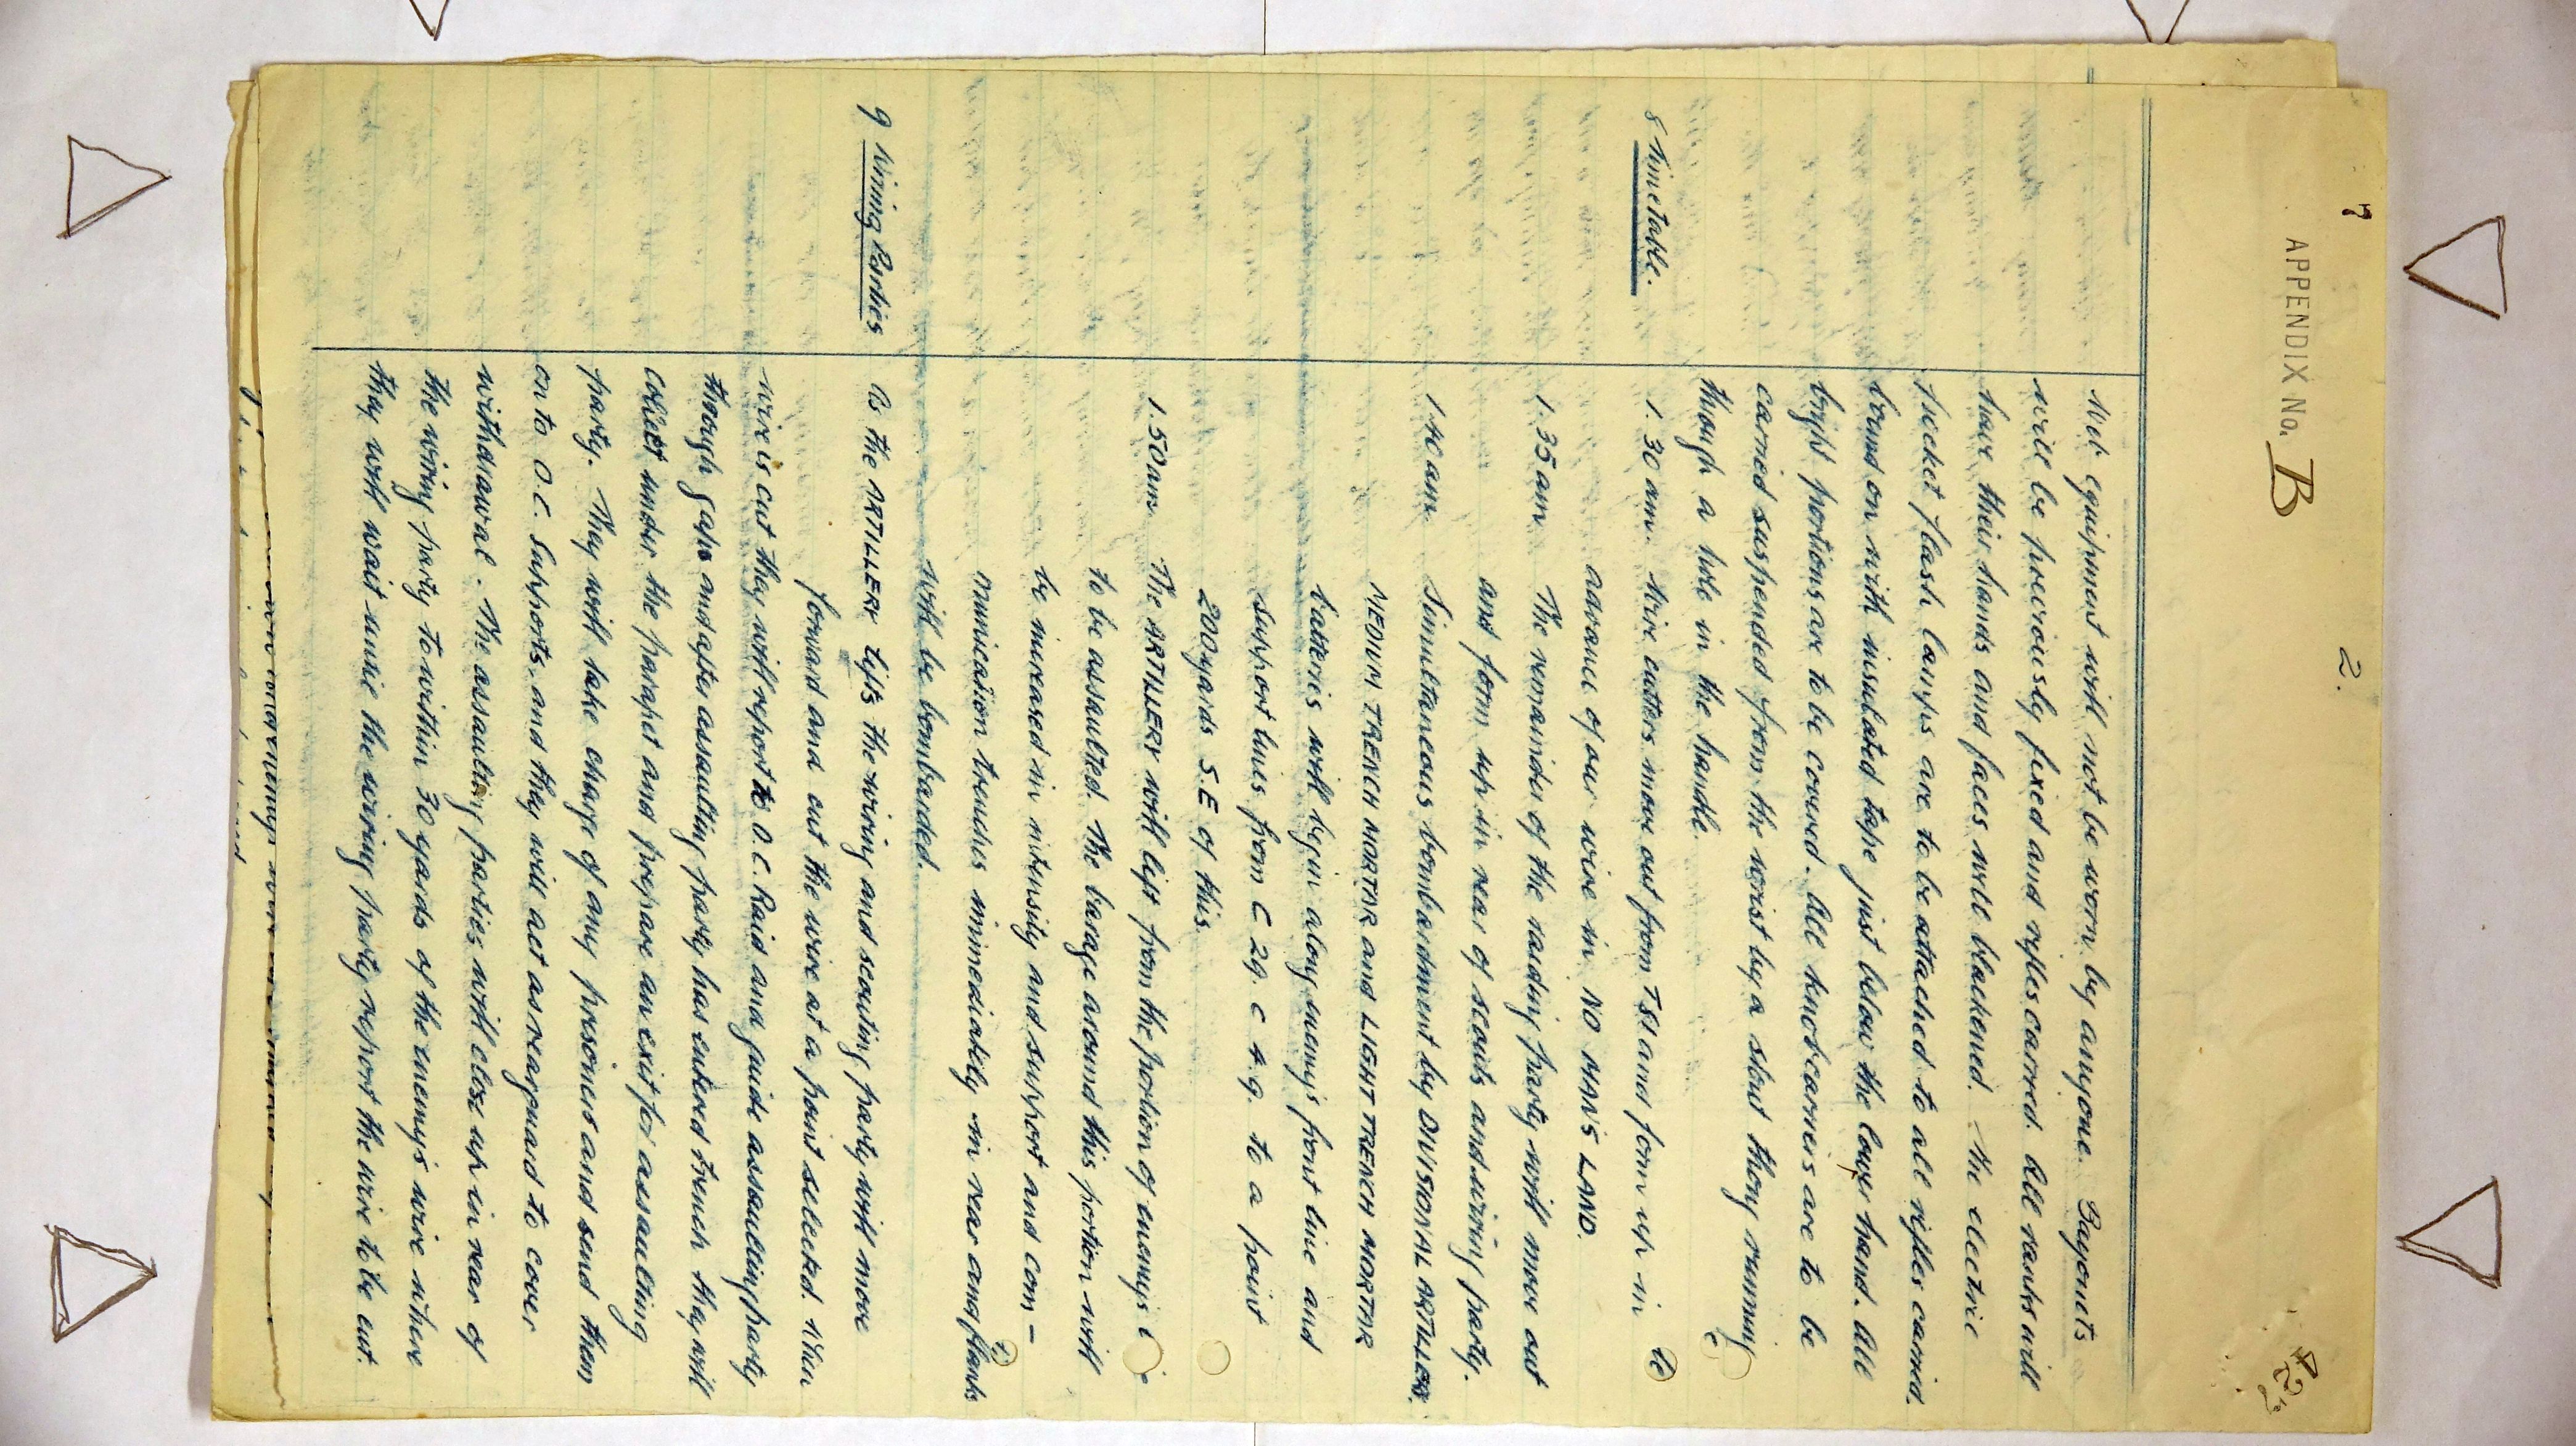 7
2.
APPENDIX No. B
425
Web equipment will not be worn by anyone. Bayonets
will be previously fixed and rifles carried. All ranks will
have their hands and faces well blackened. The electric
pocket flash lamps are to be attached to all rifles carried,
bound on with insulated tape just below the lower hand. All
bright portions are to be covered. All knobcarriers are to be
carried suspended from the wrist by a stout thong running
though a hole in the handle.
8 Timetable.
1. 30 am. Wire cutters move out from T 81 and form up in
advance of our wire in NO MAN'S LAND.
1. 35 am The remainder of the raiding party will move out
and form up in rear of scouts and wiring party.
1.40 am Simultaneous bombardment by DIVISIONAL ARTILLERY.
MEDIUM TRENCH MORTAR and LIGHT TRENCH MORTAR
batteries will begin along enemy's front line and
support lines from C 29. c 4.9. to a point
200 yards S.E of this.
1. 50 am The ARTILLERY will lift from the portion of enemys
to be assaulted. The barage around this portion will
be increased in intensity and support and com-
munication trenches immediately in rear and flanks
will be bombarded.
9 Wiring Parties
As the ARTILLERY lifts the wiring and scouting party will move
forward and cut the wire at a point selected. When
wire is cut they will report to O.C. Raid and guide assaulting party
through gaps and after assaulting party has entered trench they will
collect under the parapet and prepare an exit for assaulting
party. They will take charge of any prisoners and send them
on to O.C. Supports, and they will act as rearguard to cover
withdrawal. The assaulting parties will close up in rear of
the wiring party to within 30 yards of the enemy's wire where
they will wait until the wiring party report the wire to be cut.